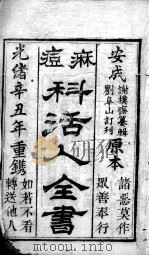 安成
謝樸齋纂輯
劉阜山訂刊
原本
諸惡莫作
眾善奉行
麻痘
科活人全書
光緒辛丑年重鐫
如若不看
轉送他人